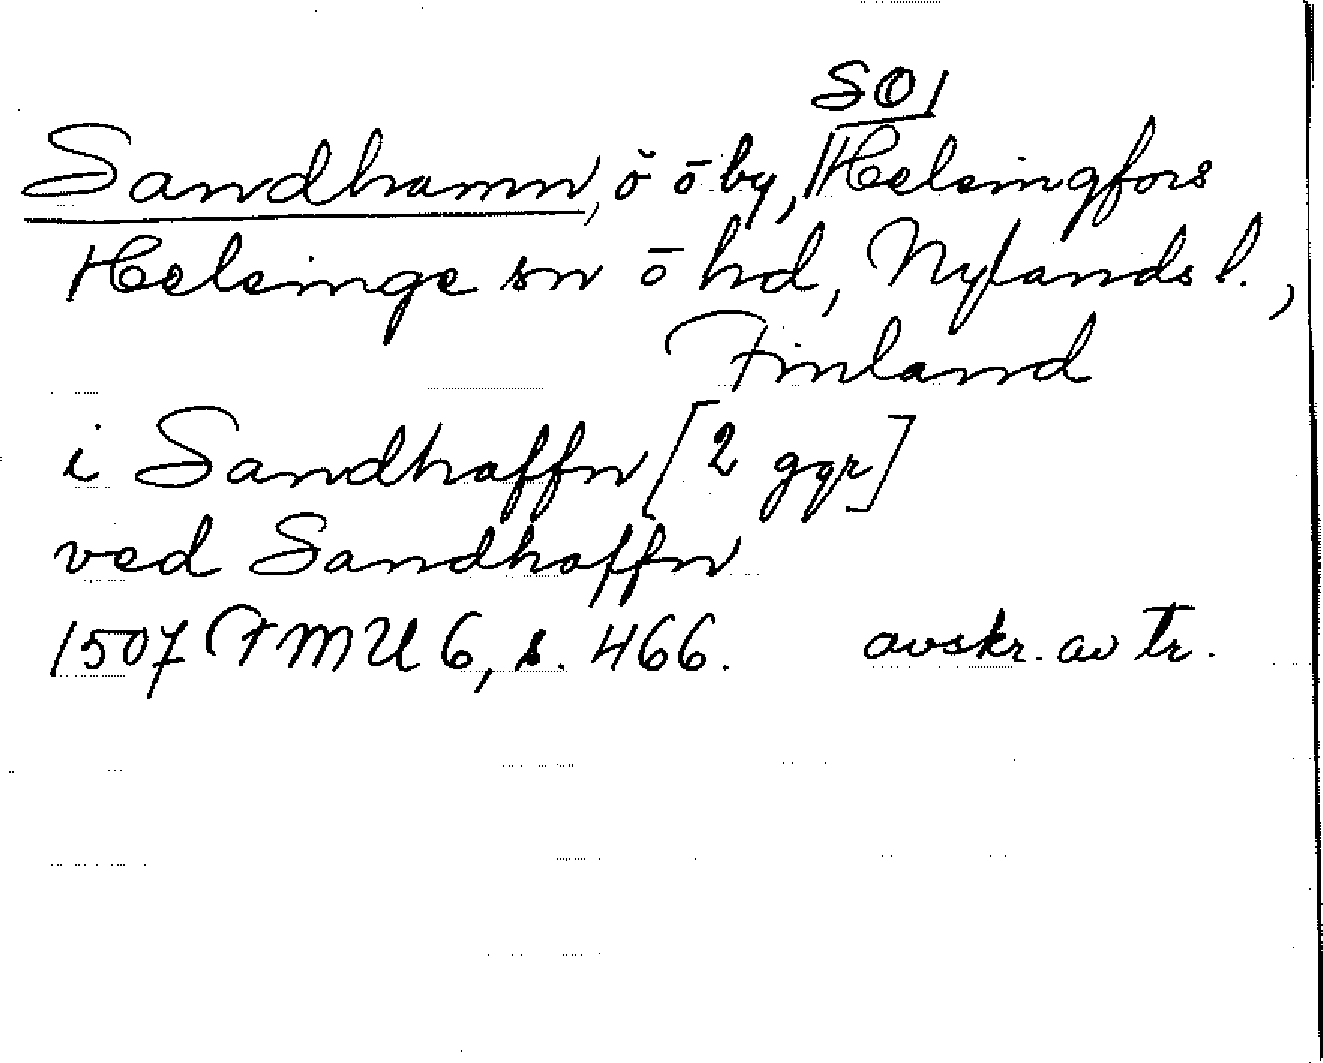 SO/
Sandhamn, ö o by, Helsingfors
Helsinge sn o hd, Nylands l.,
Finland
i Sandhaffn [2 ggr]
ved Sandhaffn
1507 FMU 6, s. 466. avskr. av tr.